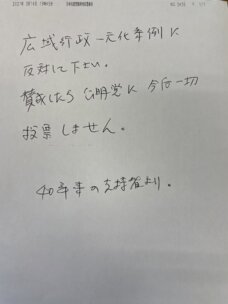 広域行政一元化条例に
反対して下さい。
賛成したら公明党に今后一切
投票しません。
40年来の支持者より。